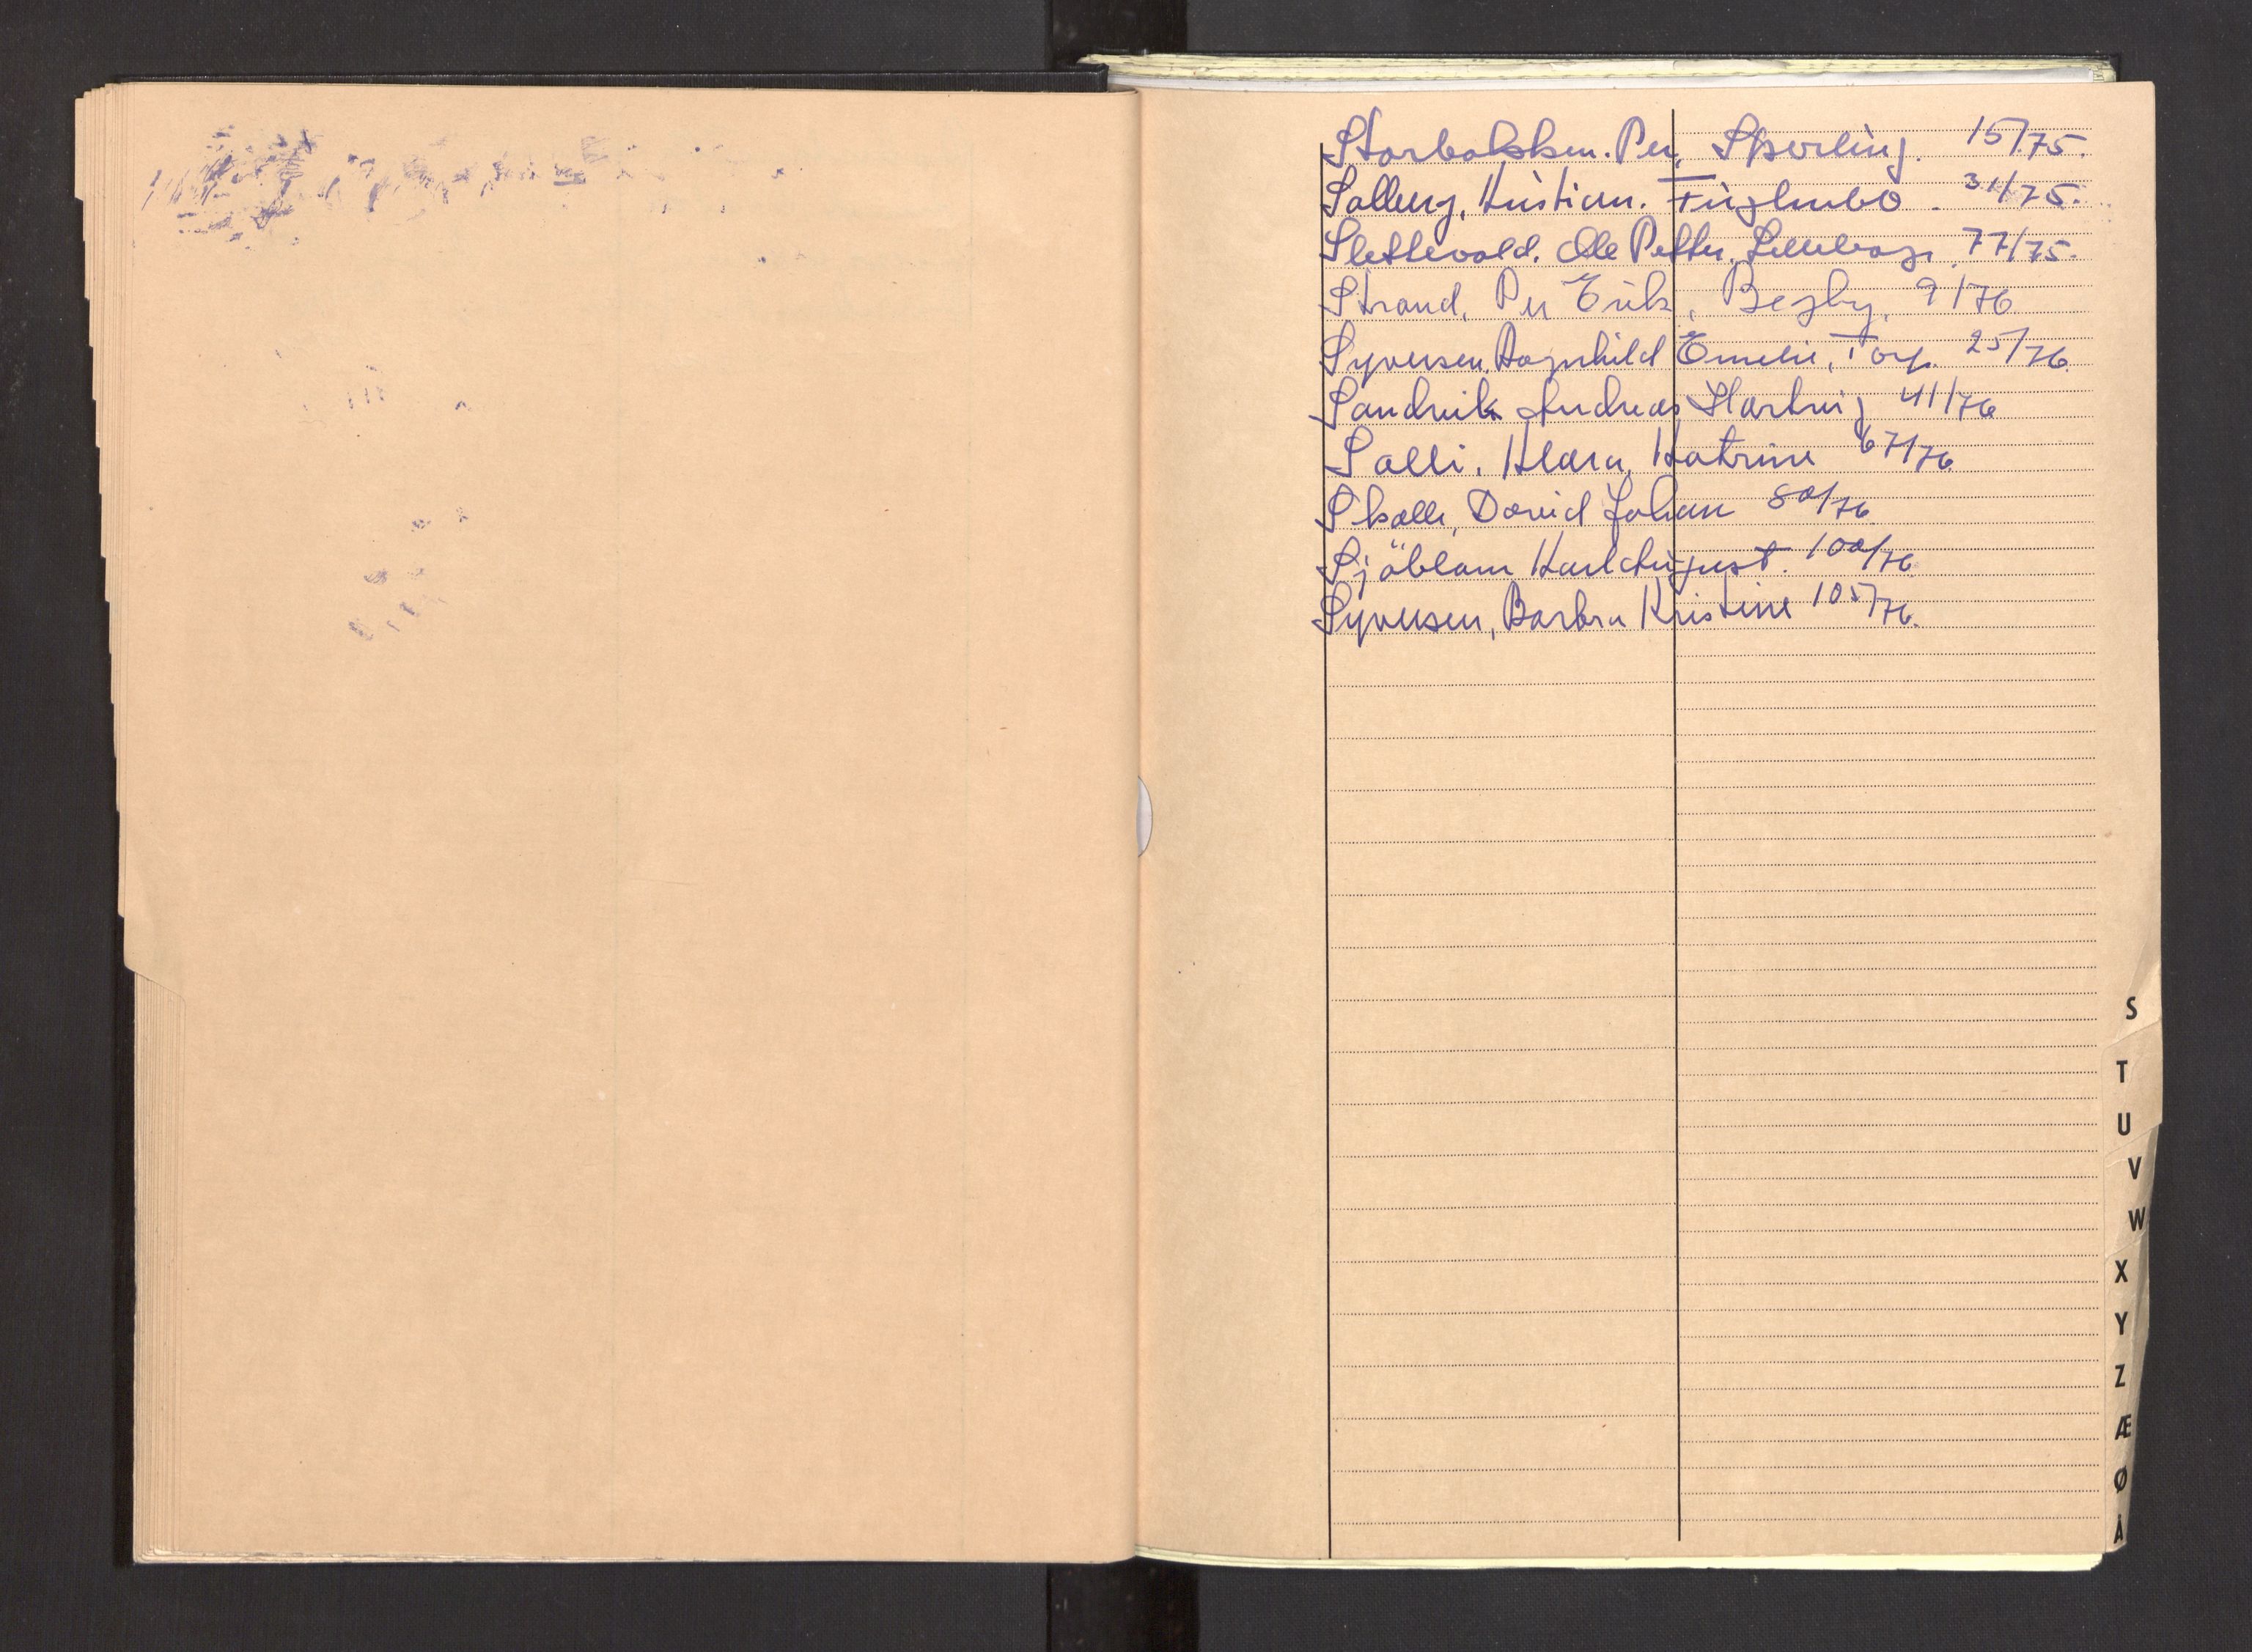 Storbakken. Per, Spurling. 15/75.
Solberg, Kristian. Fuglenbo. 31/75.
Slettevold. Ole Petter, 77/75.
Strand, Per Erik, Begby. 9/76
Syversen, Ragnhild Emelie, Torp. 25/76.
Sandvik Andreas Hartvig 41/76
Solli. Klara, Katrine 67/76.
Skolle, David Johan 80/76.
Sjöblom Karl August. 100/76.
Syversen, Barbra Kristine 105/76.
S
T
U
V
W
X
Y
Z
Æ
Ø
Å